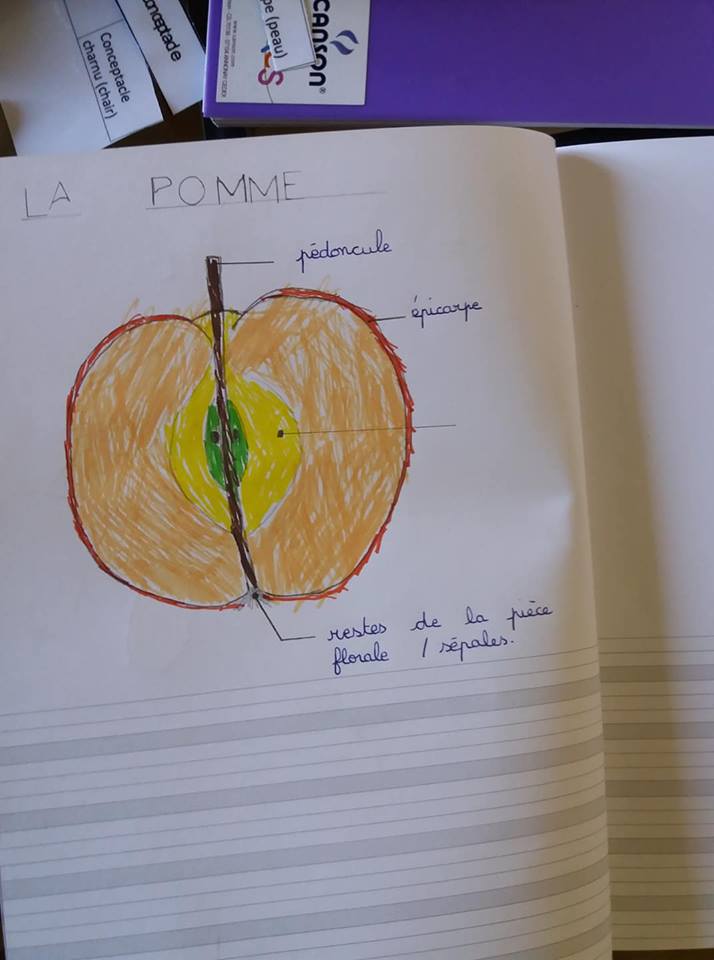 conceptacle
Conceptacle
charnu (chair)
pe (peau)
CANSON®
www.canson.com
LA POMME
pédoncule
épicarpe
restes de la pièce
florale / sépales.